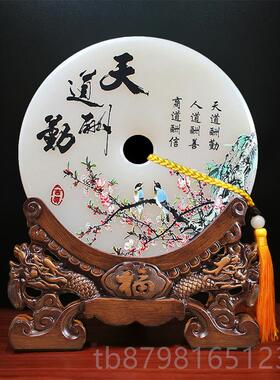 天道酬勤
天道酬勤
人道酬善
商道酬信
福
tb8798165122